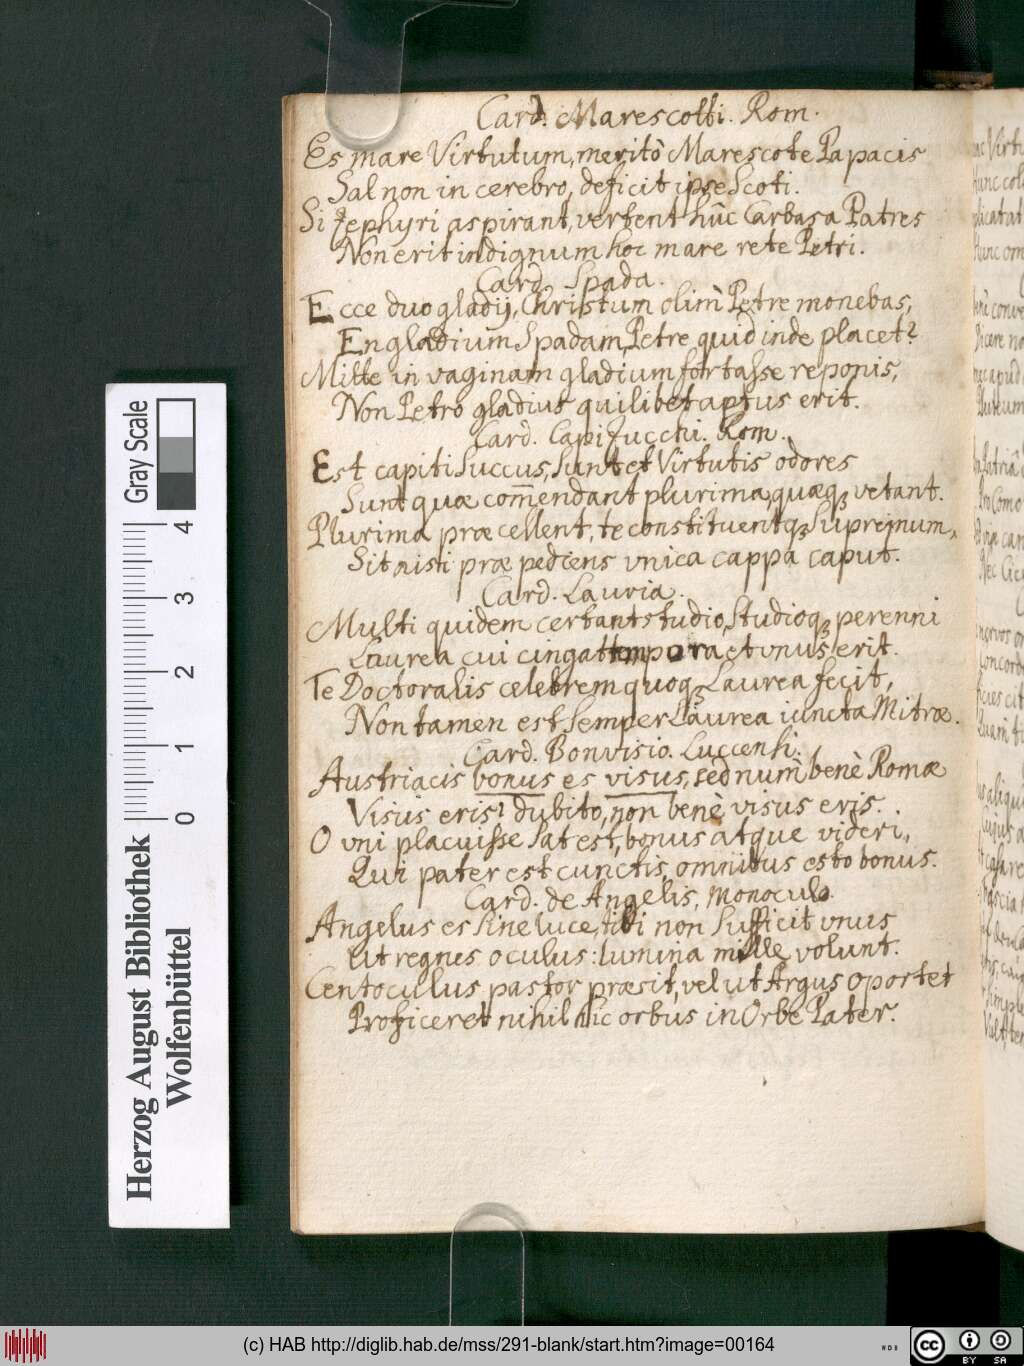 Card. Marescotti. Rom.
Es mare Virtutum, meritò Marescote Papacis
Sal non in cerebro, deficit ipse Scoti.
Si Zephyri aspirant, vertent huc Carbasa Patres
Non erit indignum hoc mare rete Petri.
Card. Spada.
Ecce duo gladij, Christum olim Petre monebas,
En gladium Spadam, Petre quid inde placet?
Mitte in vaginam gladium fortasse reponis,
Non Petro gladius quilibet aptus erit.
Card. Capizucchi. Rom.
Est capiti Succus, Sunt et Virtutis odores
Sunt quæ com̄endant plurima, quæq; vetant.
Plurima præcellent, te constituentq; Supremum,
Sit nisi præpediens vnica cappa caput.
Card. Lauria.
Multi quidem certant studio, Studioq; perenni
Laurea cui cingat tempora et vnus erit.
Te Doctoralis celebrem quoq; Laurea fecit,
Non tamen est Semper Laurea iuncta Mitræ.
Card. Bonvisio. Luccensi.
Austriacis bonus es visus, sed num benè Romæ
Visus eris? dubito, non benè visus eris.
O vni placuisse Sat est, bonus atque videri,
Qui pater est cunctis, omnibus esto bonus.
Card. de Angelis, Monoculo.
Angelus es Sine luce, tibi non Sufficit vnus
Ut regnes oculus: lumina mille volunt.
Centoculus pastor præsit, vel ut Argus oportet
Proficeret nihil hic orbus in Orbe Pater.
Herzog August Bibliothek
Wolfenbüttel
Gray Scale
0 1 2 3 4
(c) HAB http://diglib.hab.de/mss/291-blank/start.htm?image=00164
WDB
cc BY SA